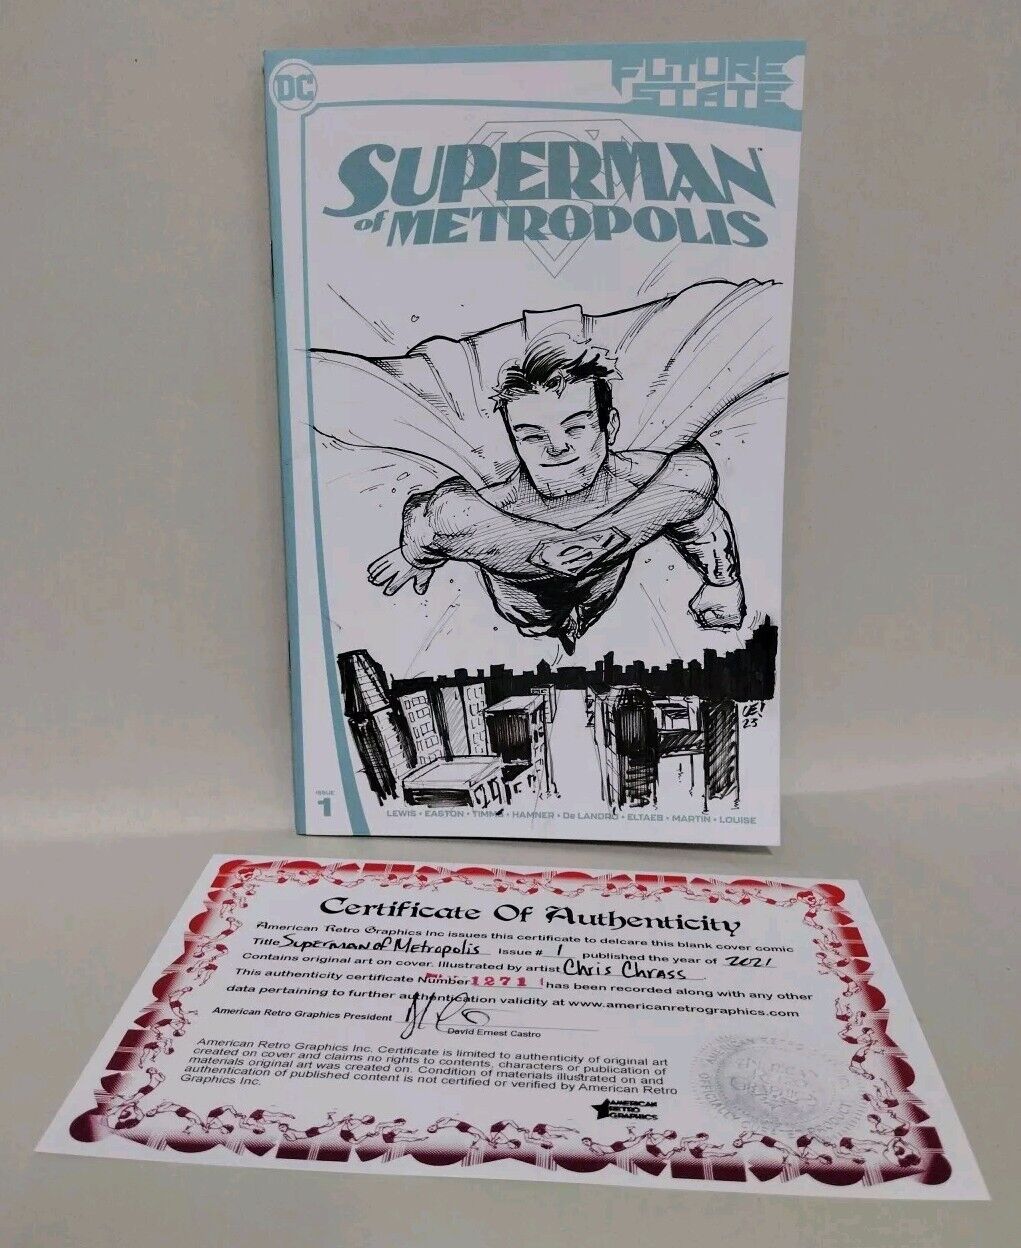 DC
FUTURE
STATE
SUPERMAN™
of METROPOLIS
25
ISSUE
1
LEWIS • EASTON • TIMMS • HAMNER • De LANDRO • ELTAEB • MARTIN • LOUISE
Certificate Of Authenticity
American Retro Graphics Inc issues this certificate to delcare this blank cover comic
Title Superman of Metropolis Issue # 1 published the year of 2021
Contains original art on cover. Illustrated by artist Chris Chrass
This authenticity certificate Number 1271 has been recorded along with any other
data pertaining to further authentication validity at www.americanretrographics.com
American Retro Graphics President
David Ernest Castro
American Retro Graphics Inc. Certificate is limited to authenticity of original art
created on cover and claims no rights to contents, characters or publication of
materials original art was created on. Condition of materials illustrated on and
authentication of published content is not certified or verified by American Retro
Graphics Inc.
AMERICAN
RETRO
GRAPHICS